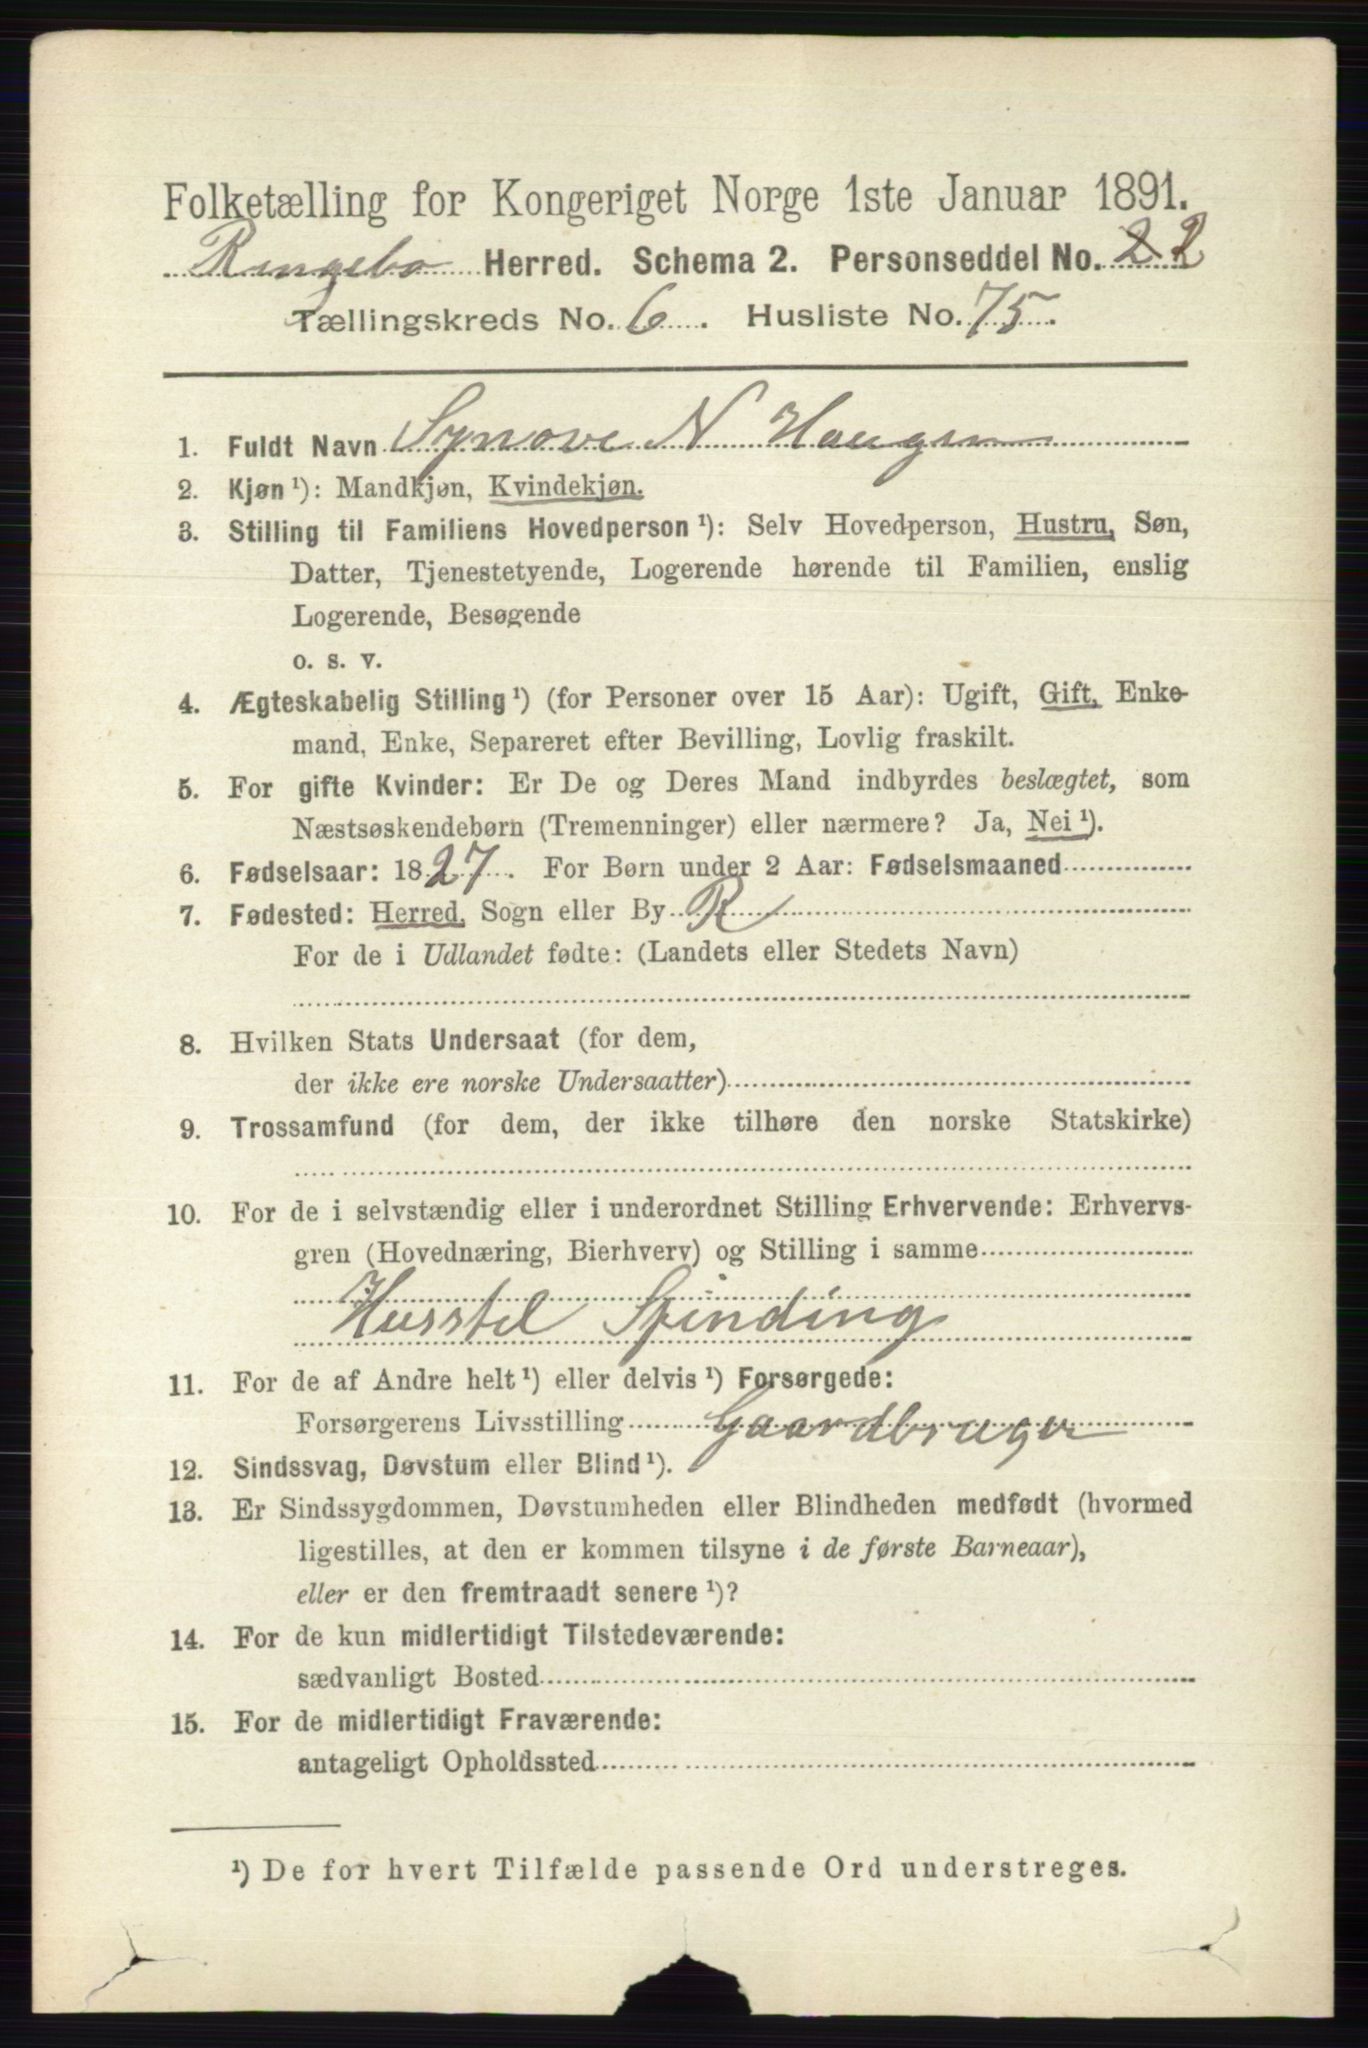 Folketælling for Kongeriget Norge 1ste Januar 1891.
Ringebo Herred. Schema 2. Personseddel No. 22
Tællingskreds No. 6. Husliste No. 75.
1. Fuldt Navn Synove N Haugen
2. Kjøn ¹): Mandkjøn, Kvindekjøn.
3. Stilling til Familiens Hovedperson ¹): Selv Hovedperson, Hustru, Søn,
Datter, Tjenestetyende, Logerende hørende til Familien, enslig
Logerende, Besøgende
o. s. v.
4. Ægteskabelig Stilling ¹) (for Personer over 15 Aar): Ugift, Gift, Enke-
mand, Enke, Separeret efter Bevilling, Lovlig fraskilt.
5. For gifte Kvinder: Er De og Deres Mand indbyrdes beslægtet, som
Næstsøskendebørn (Tremenninger) eller nærmere? Ja, Nei ¹).
6. Fødselsaar: 1827. For Børn under 2 Aar: Fødselsmaaned
7. Fødested: Herred, Sogn eller By R
For de i Udlandet fødte: (Landets eller Stedets Navn)
8. Hvilken Stats Undersaat (for dem,
der ikke ere norske Undersaatter)
9. Trossamfund (for dem, der ikke tilhøre den norske Statskirke)
10. For de i selvstændig eller i underordnet Stilling Erhvervende: Erhvervs-
gren (Hovednæring, Bierhverv) og Stilling i samme
Husstel Spinding
11. For de af Andre helt ¹) eller delvis ¹) Forsørgede:
Forsørgerens Livsstilling Gaardbruger
12. Sindssvag, Døvstum eller Blind ¹).
13. Er Sindssygdommen, Døvstumheden eller Blindheden medfødt (hvormed
ligestilles, at den er kommen tilsyne i de første Barneaar),
eller er den fremtraadt senere ¹)?
14. For de kun midlertidigt Tilstedeværende:
sædvanligt Bosted
15. For de midlertidigt Fraværende:
antageligt Opholdssted
¹) De for hvert Tilfælde passende Ord understreges.